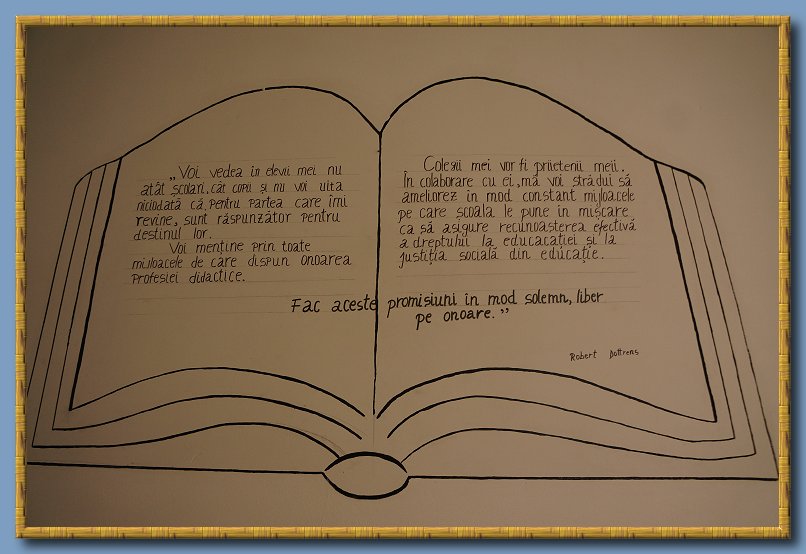 „Voi vedea în elevii mei nu
atât școlari, cât copii și nu voi uita
niciodată că, pentru partea care îmi
revine, sunt răspunzător pentru
destinul lor.
Voi menține prin toate
mijloacele de care dispun onoarea
profesiei didactice.
Colegii mei vor fi prietenii mei.
În colaborare cu ei, mă voi strădui să
ameliorez în mod constant mijloacele
pe care școala le pune în mișcare
ca să asigure recunoasterea efectivă
a dreptului la educacației și la
justiția socială din educație.
Fac aceste promisiuni în mod solemn, liber
pe onoare.”
Robert Dottrens